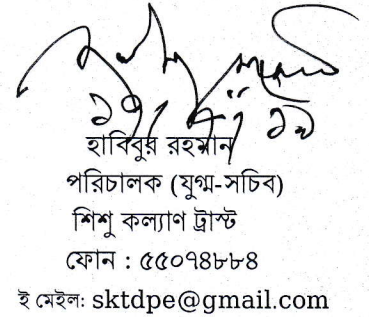 হাবিবুর রহমান
পরিচালক (যুগ্ম-সচিব)
শিশু কল্যাণ ট্রাস্ট
ফোন : ৫৫০৭৪৮৮৪
ই মেইল: sktdpe@gmail.com